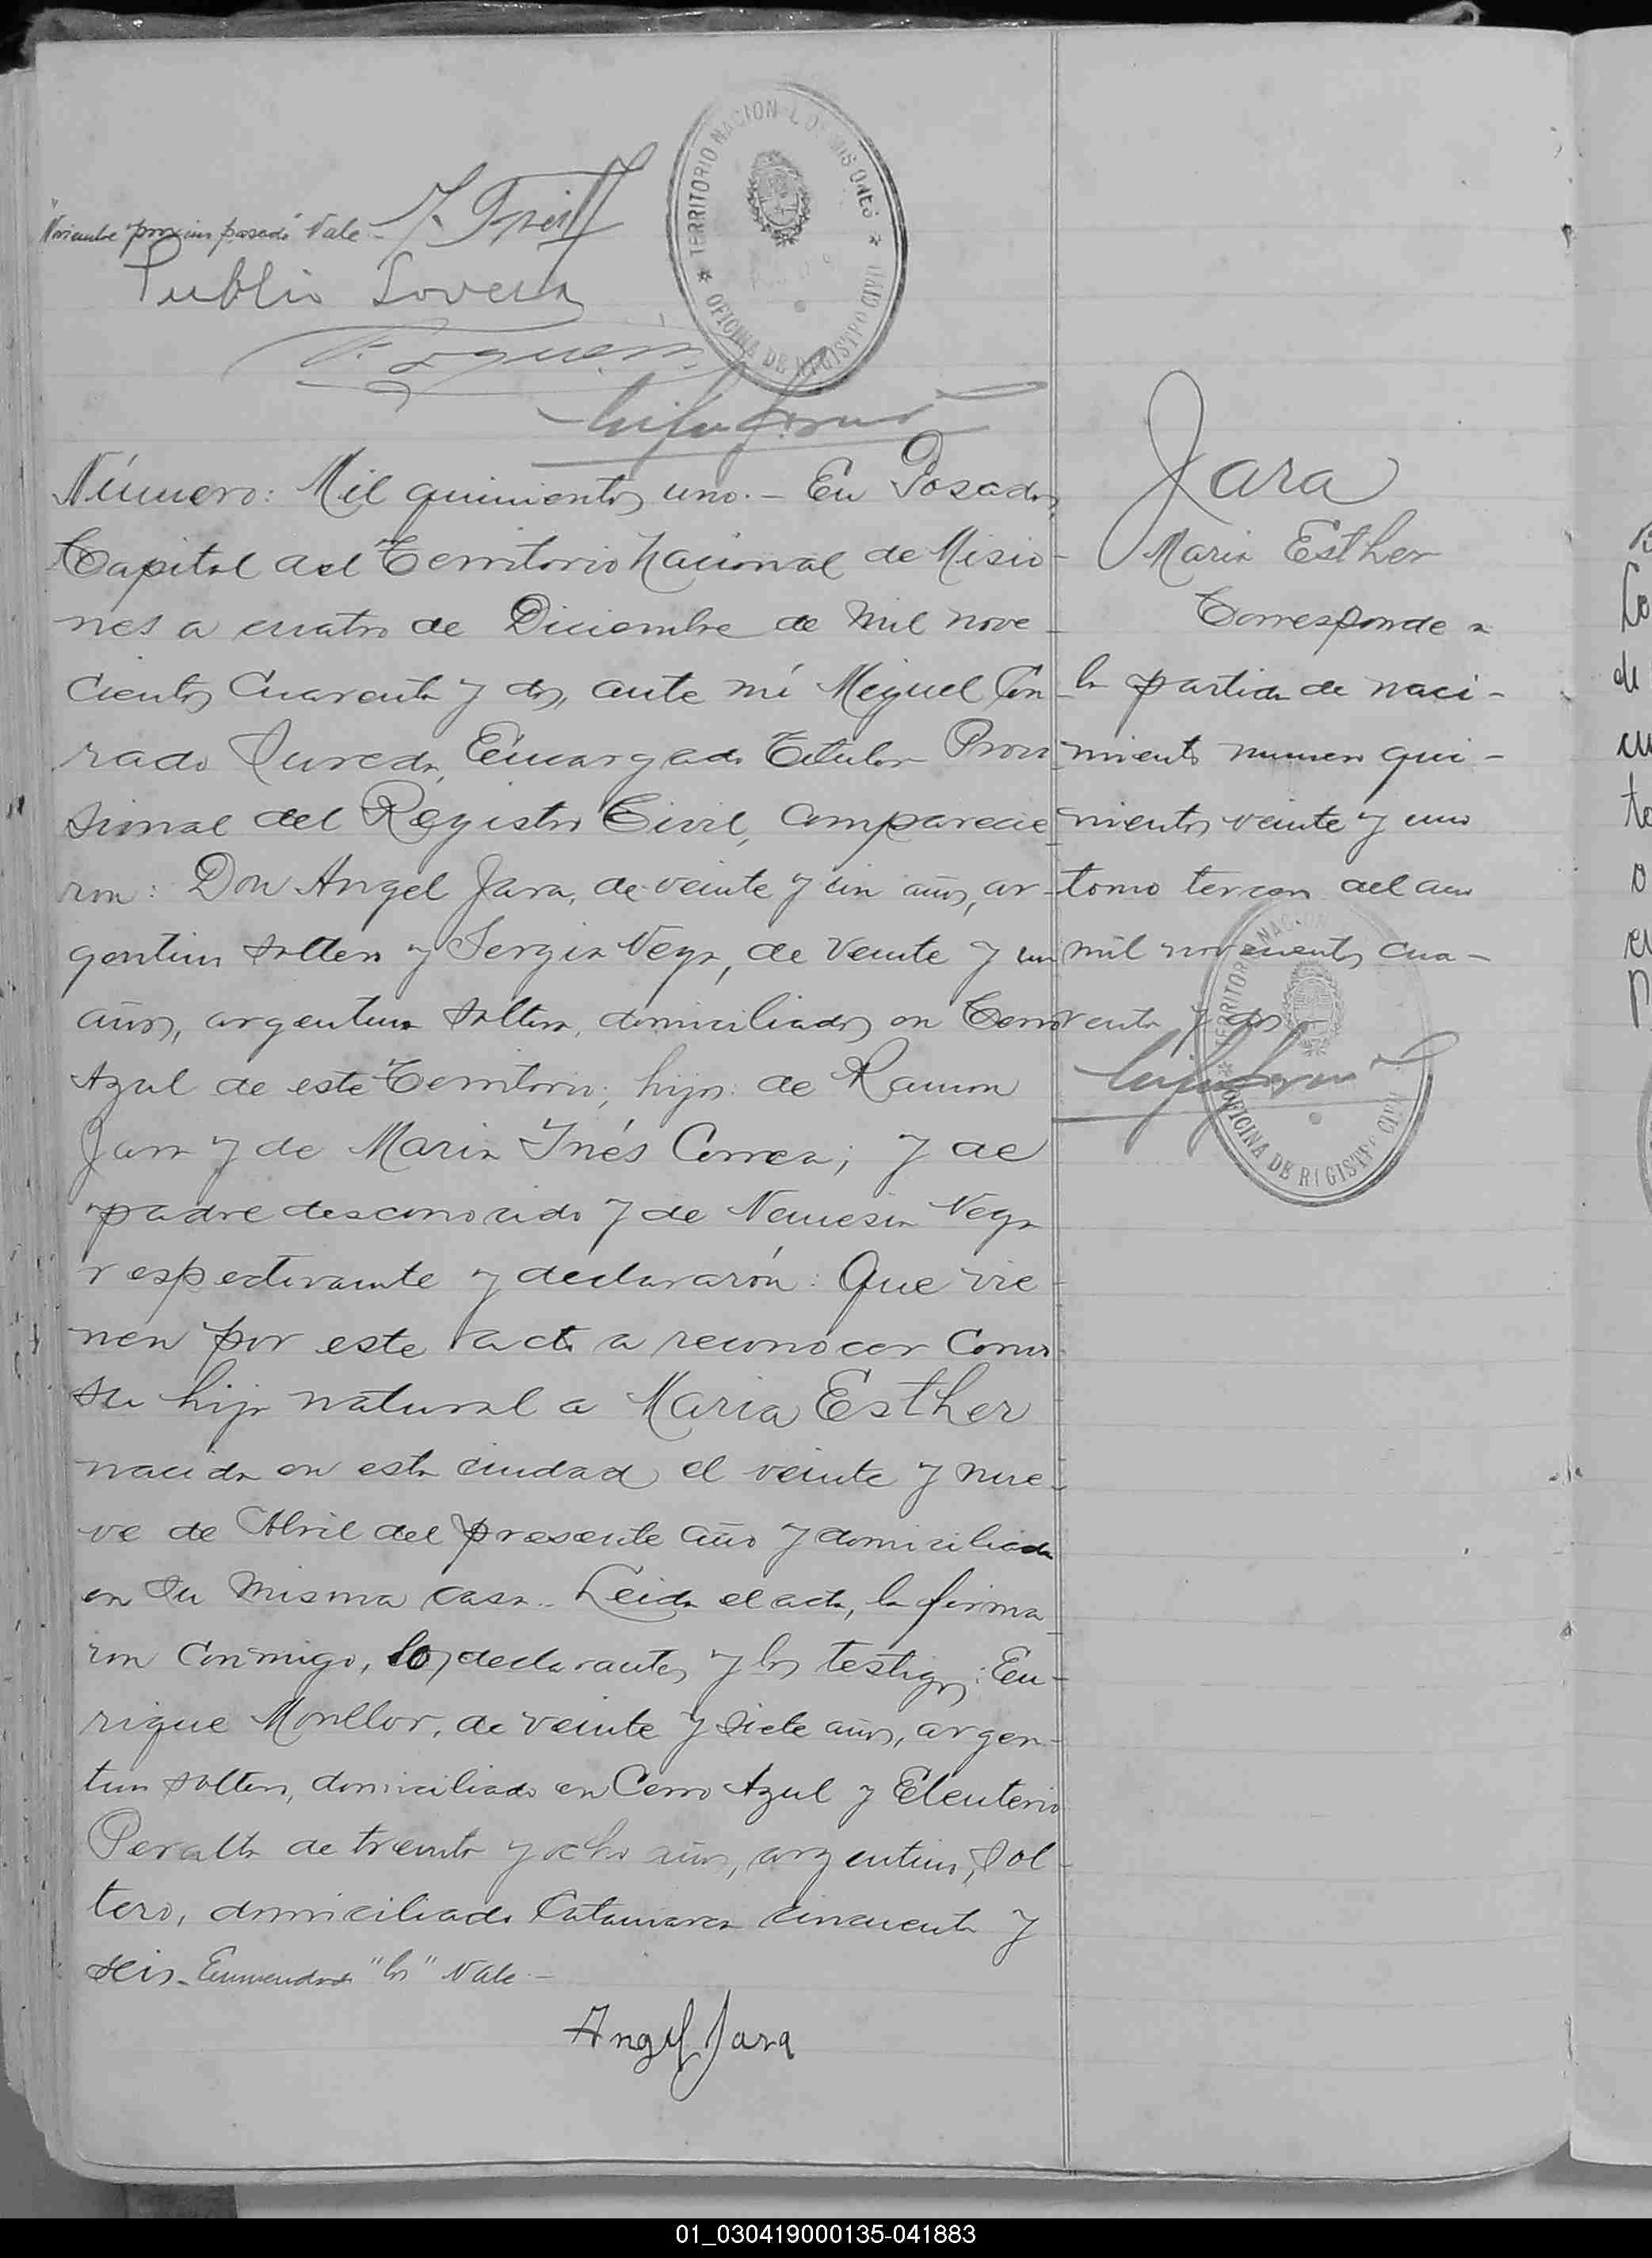 "Noviembre próximo pasado" Vale.-
Publio Lovera
TERRITORIO NACIONAL DE MISIONES
OFICINA DE REGISTRO CIVIL
Número: Mil quinientos uno.- En Posadas,
Capital del Territorio Nacional de Misio-
nes a cuatro de Diciembre de mil nove-
cientos cuarenta y dos, ante mí Miguel Con-
rado Jureda, Encargado Titular Provi-
sional del Registro Civil, comparecie-
ron: Don Angel Jara, de veinte y un años, ar-
gentino soltero y Sergia Vega, de veinte y un
años, argentina soltera, domiciliados en Cerro
Azul de este Territorio; hijos: de Ramon
Jara y de Maria Inés Correa; y de
padre desconocido y de Nemesia Vega
respectivamente y declararón: Que vie-
nen por este acto a reconocer como
su hija natural a Maria Esther
nacida en esta ciudad el veinte y nue-
ve de Abril del presente año y domiciliada
en su misma casa.- Leida el acta, la firma-
ron conmigo, los declarantes y los testigos: En-
rique Monllor, de veinte y siete años, argen-
tino soltero, domiciliado en Cerro Azul y Eleuterio
Peralta de treinta y ocho años, argentino, sol-
tero, domiciliado Catamarca cincuenta y
seis.- Enmendado "los" Vale.-
Angel Jara
Jara
Maria Esther
Corresponde a
la partida de naci-
miento numero qui-
nientos veinte y uno
tomo tercero del año
mil novecientos cua-
renta y dos
TERRITORIO NACION
OFICINA DE REGISTRO CIVIL
01_030419000135-041883